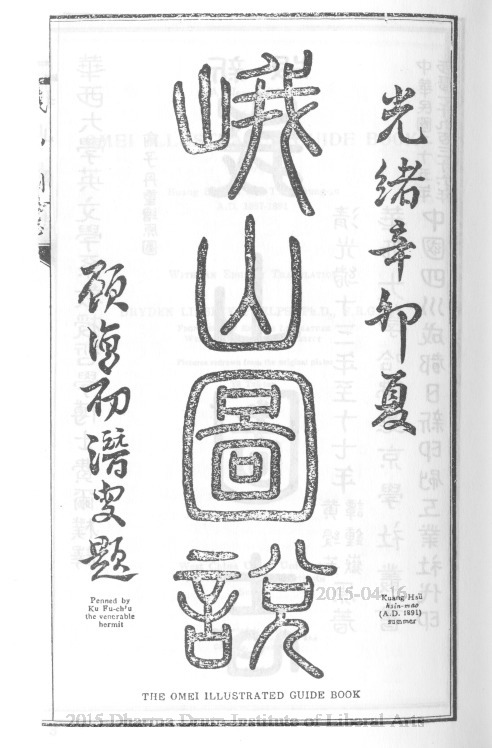 光緒辛卯夏
Kuang Hsü
hsin-mao
(A.D. 1891)
summer
峨山圖說
THE OMEI ILLUSTRATED GUIDE BOOK
顧復初潛叟題
Penned by
Ku Fu-ch'u
the venerable
hermit
2015-04-16
2015 Dharma Drum Institute of Liberal Arts